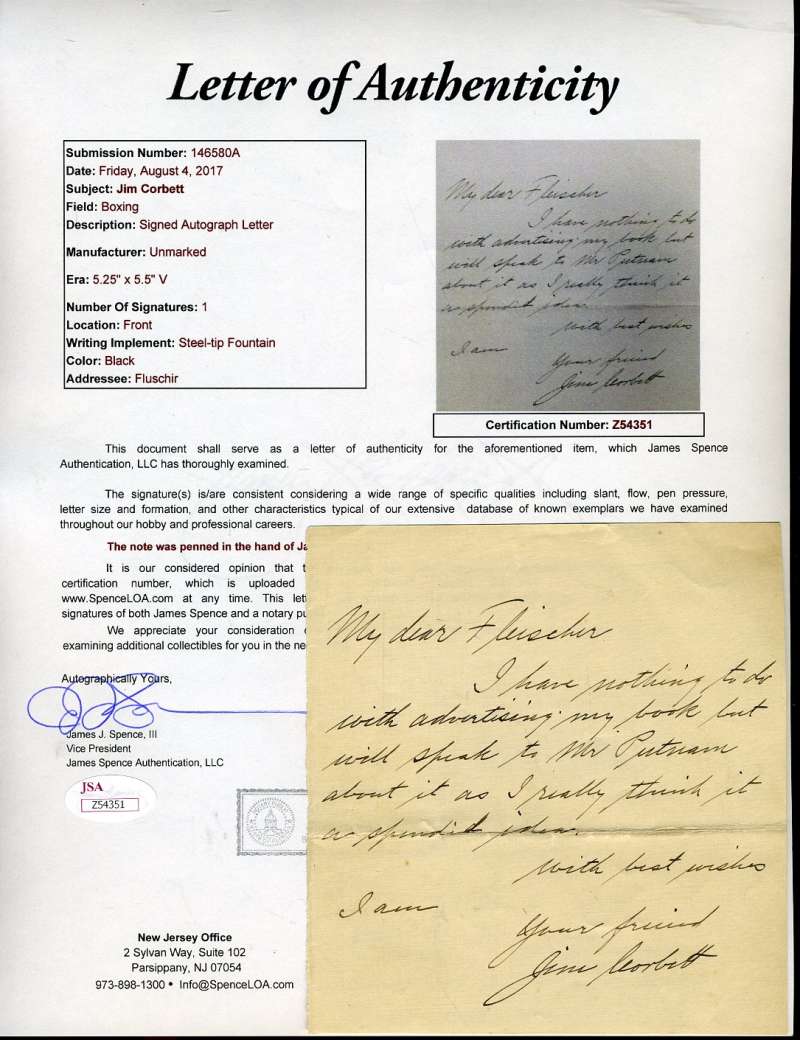 Letter of Authenticity
Submission Number: 146580A
Date: Friday, August 4, 2017
Subject: Jim Corbett
Field: Boxing
Description: Signed Autograph Letter
Manufacturer: Unmarked
Era: 5.25" x 5.5" V
Number Of Signatures: 1
Location: Front
Writing Implement: Steel-tip Fountain
Color: Black
Addressee: Fluschir
My dear Fleischer
I have nothing to do
with advertising my book but
will speak to Mr Putnam
about it as I really think it
a spendid idea.
with best wishes
I am
Your friend
Jim Corbett
Certification Number: Z54351
This document shall serve as a letter of authenticity for the aforementioned item, which James Spence
Authentication, LLC has thoroughly examined.
The signature(s) is/are consistent considering a wide range of specific qualities including slant, flow, pen pressure,
letter size and formation, and other characteristics typical of our extensive database of known exemplars we have examined
throughout our hobby and professional careers.
The note was penned in the hand of Ja
It is our considered opinion that t
certification number, which is uploaded
www.SpenceLOA.com at any time. This lett
signatures of both James Spence and a notary pu
We appreciate your consideration
examining additional collectibles for you in the ne
Autographically Yours,
James J. Spence, III
Vice President
James Spence Authentication, LLC
JSA
Z54351
New Jersey Office
2 Sylvan Way, Suite 102
Parsippany, NJ 07054
973-898-1300 • Info@SpenceLOA.com
My dear Fleischer
I have nothing to do
with advertising my book but
will speak to Mr Putnam
about it as I really think it
a spendid idea.
With best wishes
I am
Your friend
Jim Corbett